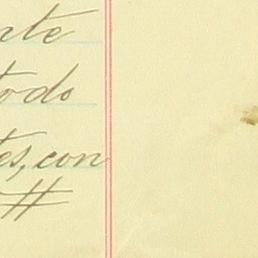 nte
todo
tes, con
#